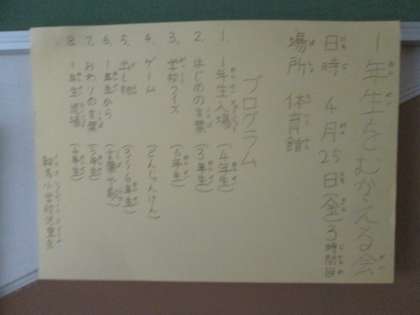 1年生をむかえる会
日時 4月25日(金)3時間目
場所 体育館
プログラム
1. 1年生入場 (4年生)
2. はじめの言葉 (3年生)
3. 学校クイズ (5年生)
4. ゲーム (どんじゃんけん)
5. 出し物 (3〜6年生)
6. 1年生から (言葉・歌)
7. おわりの言葉 (5年生)
8. 1年生退場 (4年生)
小学校児童会